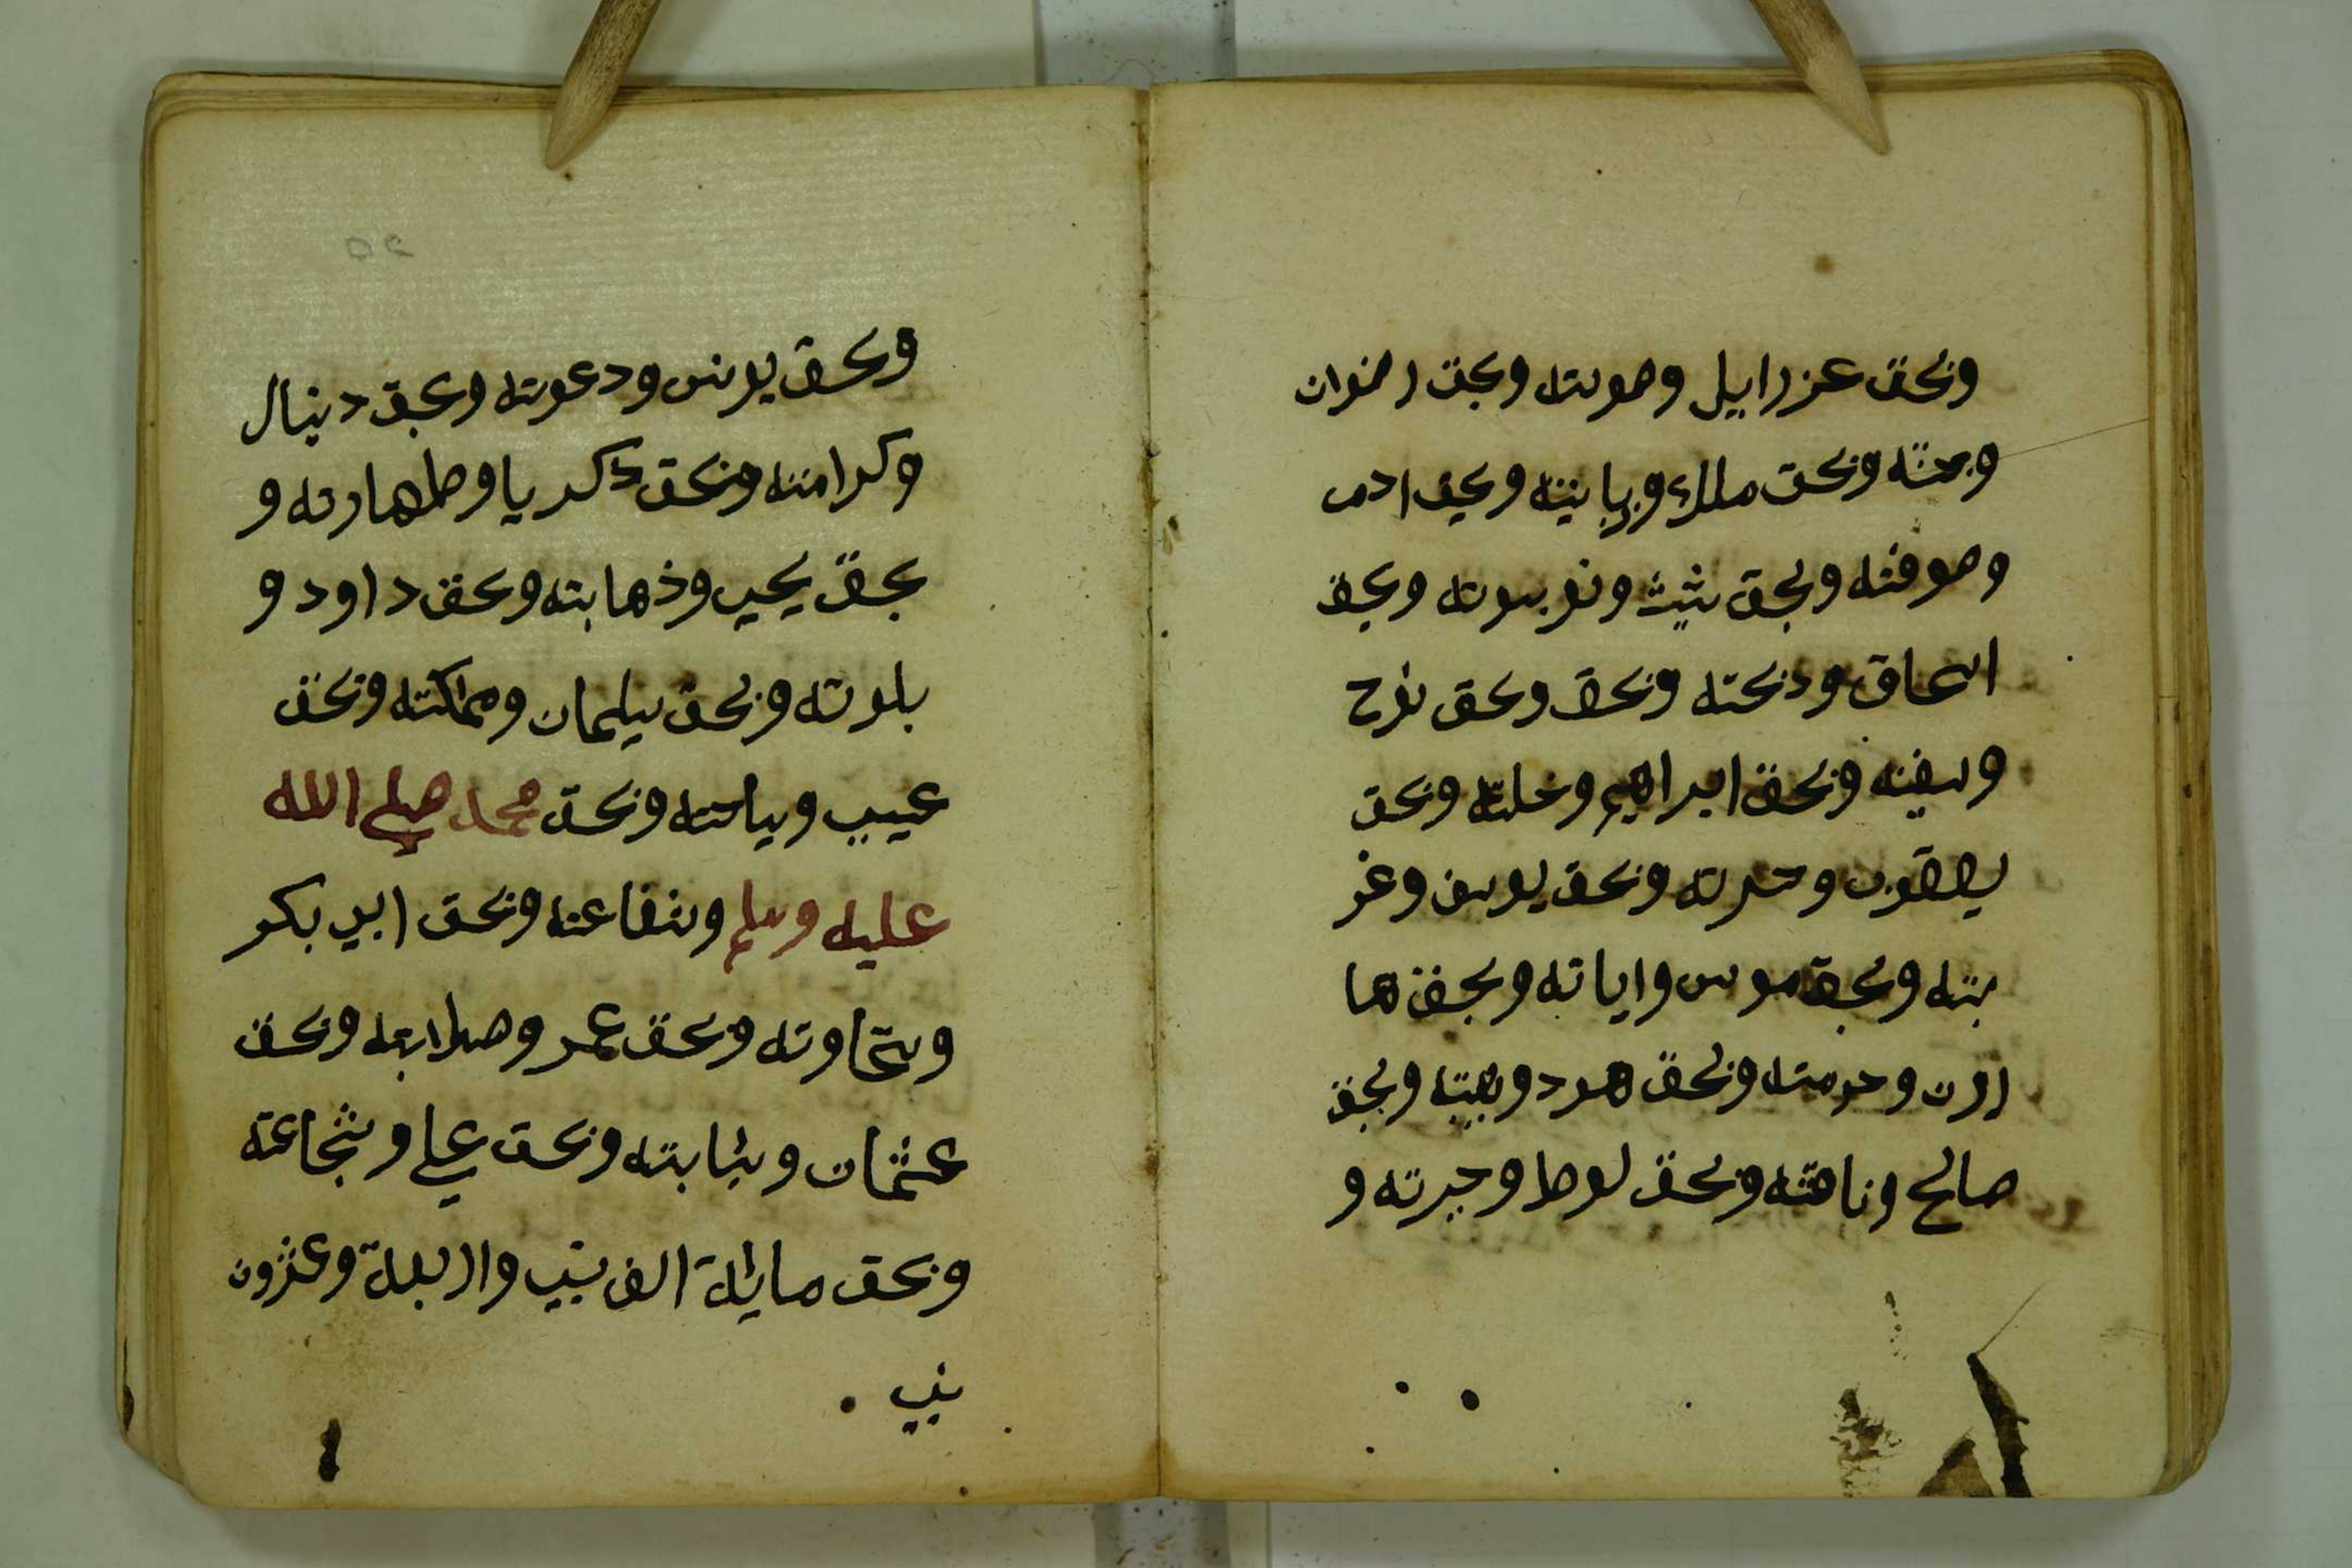 وبحق عزرايل وصوته وبحق رضوان
وجنته وبحق ملك وزبانيته وبحق ادم
وصوفته وبحق شيث ونوبيوته وبحق
اسحاق وذبحته وبحق وبحق نوح
وسفينه وبحق ابراهيم وخلته وبحق
يعقوب وحرته وبحق يوسف وغر
بته وبحق موسى واياته وبحق ها
رون وحرمته وبحق هود وهيبته وبحق
صالح وناقته وبحق لوط وجيرته و
وبحق يونس ودعوته وبحق دنيال
وكرامته وبحق ذكريا وطهارته و
بحق يحيى وذهابته وبحق داود و
بلوته وبحق سليمان ومملكته وبحق
عيسى وسياحته وبحق محمد صلى الله
عليه وسلم وشفاعته وبحق ابي بكر
وسخاوته وبحق عمر وصلابته وبحق
عثمان وشابته وبحق علي وشجاعته
وبحق ماية الف نبي واربعة وعشرون
نبي